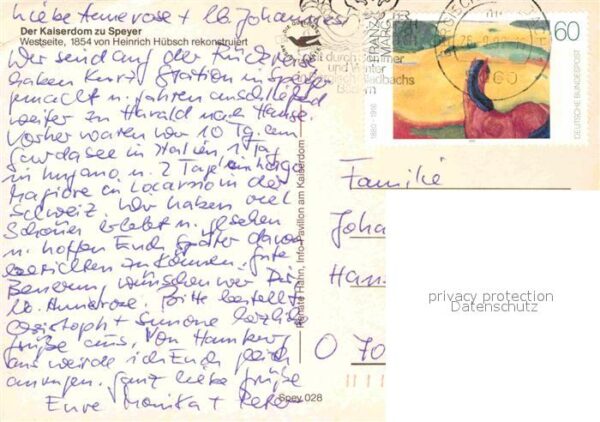 Liebe Annerose + lb. Johannes!
Der Kaiserdom zu Speyer
Westseite, 1854 von Heinrich Hübsch rekonstruiert
Wir sind auf der Rückreise
haben kurz Station in Speyer
gemacht u. fahren anschließend
weiter zu Harald nach Hause.
Vorher waren wir 10 Tg. am
Gardasee in Italien 1 Tag
in Lugano u. 2 Tage
in Locarno in der
Schweiz. Wir haben viel
Schönes erlebt u. gesehen
u. hoffen Euch später davon
berichten zu können. Gute
Besserung wünschen wir Dir,
lb. Annerose. Bitte bestellt
Christoph + Simone herzliche
Grüße aus. Von Hamburg
aus werde ich Euch gleich
anrufen. Ganz liebe Grüße
Eure Monika + Peter
Renate Hahn, Info-Pavillon am Kaiserdom
Spey 028
FRANZ MARC
1880-1916
60
DEUTSCHE BUNDESPOST
60
Familie
Joha
Han
O 70
privacy protection
Datenschutz